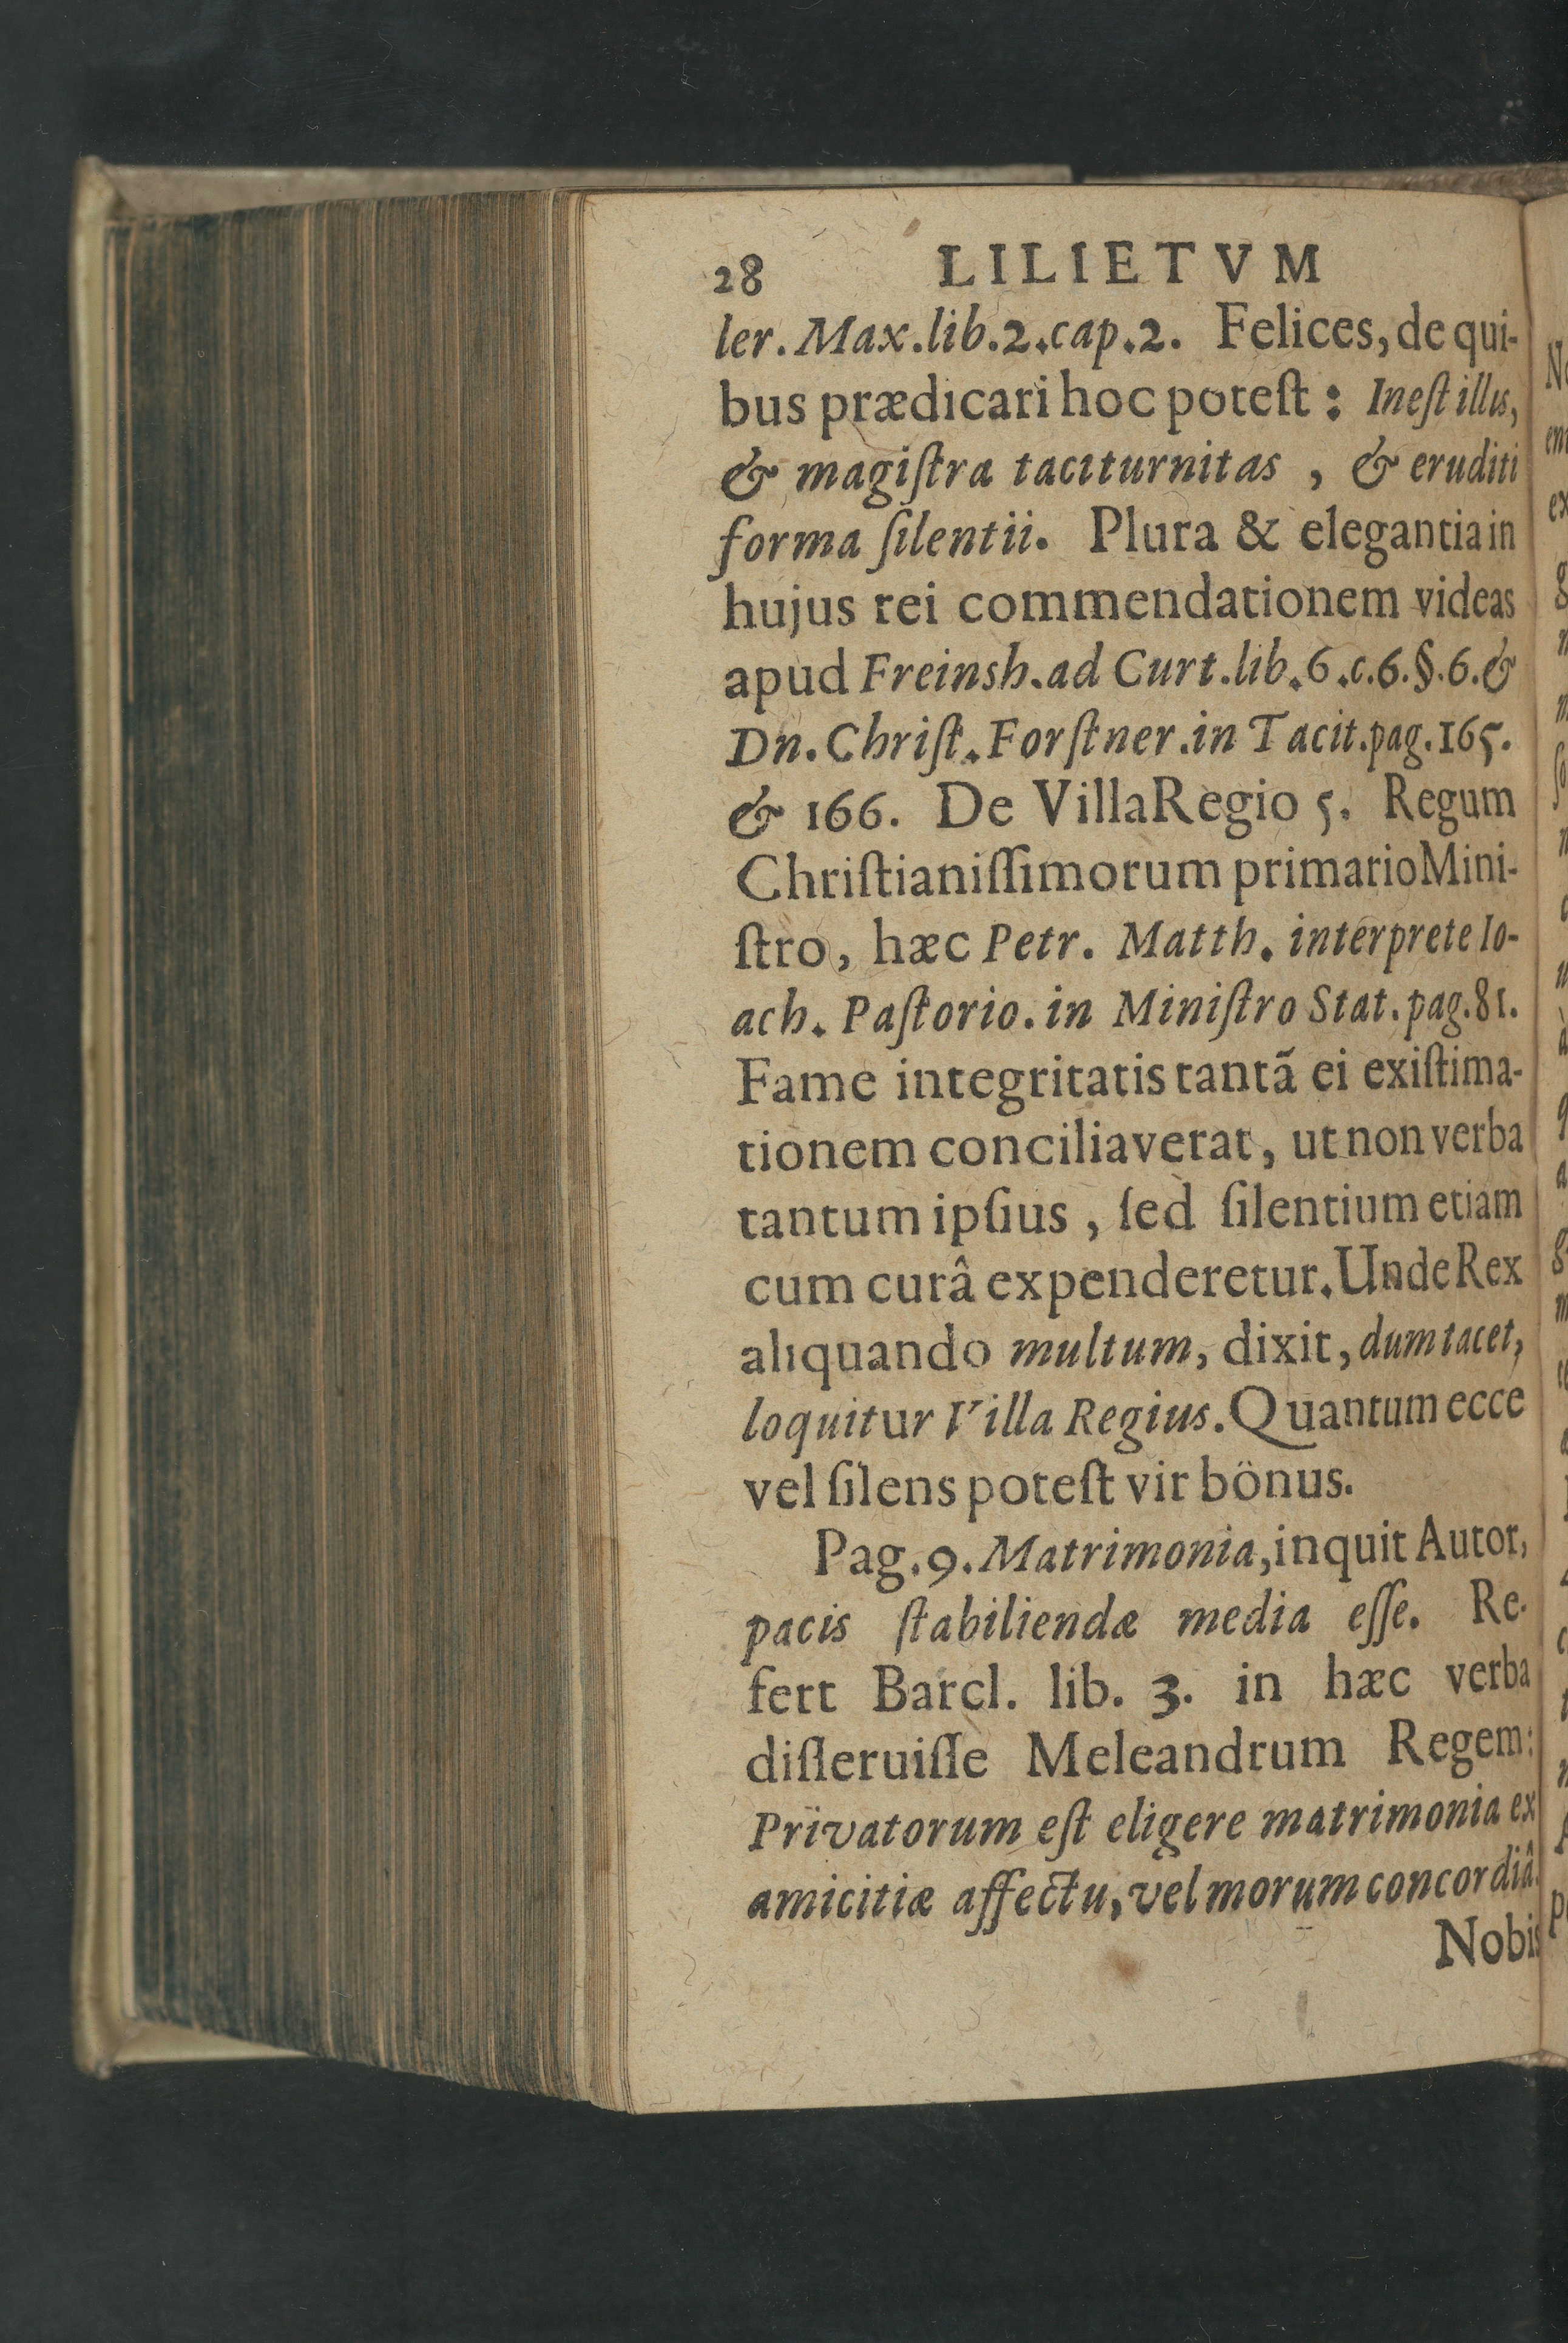 28 LILIETVM
ler. Max. lib. 2. cap. 2. Felices, de qui-
bus prædicari hoc poteſt: Ineſt illis,
& magiſtra taciturnitas, & eruditi
forma ſilentii. Plura & elegantia in
hujus rei commendationem videas
apud Freinsh. ad Curt. lib. 6. c. 6. §. 6. &
Dn. Chriſt. Forſtner. in Tacit. pag. 165.
& 166. De Villa Regio 5. Regum
Chriſtianiſſimorum primario Mini-
ſtro, hæc Petr. Matth. interprete Io-
ach. Paſtorio. in Miniſtro Stat. pag. 81.
Fame integritatis tantã ei exiſtima-
tionem conciliaverat, ut non verba
tantum ipſius, ſed ſilentium etiam
cum curâ expenderetur. Unde Rex
aliquando multum, dixit, dum tacet,
loquitur Villa Regius. Quantum ecce
vel ſilens poteſt vir bönus.
Pag. 9. Matrimonia, inquit Autor,
pacis ſtabiliendæ media eſſe. Re-
fert Barcl. lib. 3. in hæc verba
diſſeruiſſe Meleandrum Regem:
Privatorum eſt eligere matrimonia ex
amicitiæ affectu, vel morum concordiâ.
Nobis